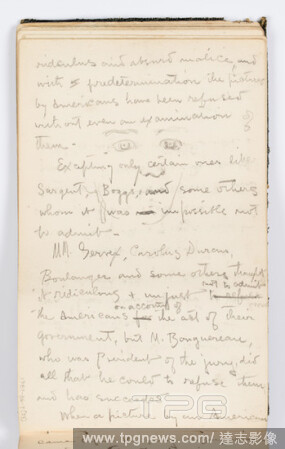 ridiculous and absurd malice, and
with predetermination the pictures
by Americans have been refused
without even an examination
them -
Excepting only certain ones like
Sargent, Boggs, and some others
whom it was impossible not
to admit -
MM Gervex, Carolus Durans,
Boulanger and some others thought
it ridiculous + unjust not to admit
on account of
the Americans for the act of their
Government, but M. Bouguereau,
who was President of the jury, did
all that he could to refuse them
and has succeeded
When a picture by an American
TPG
www.tpgnews.com / 達志影像